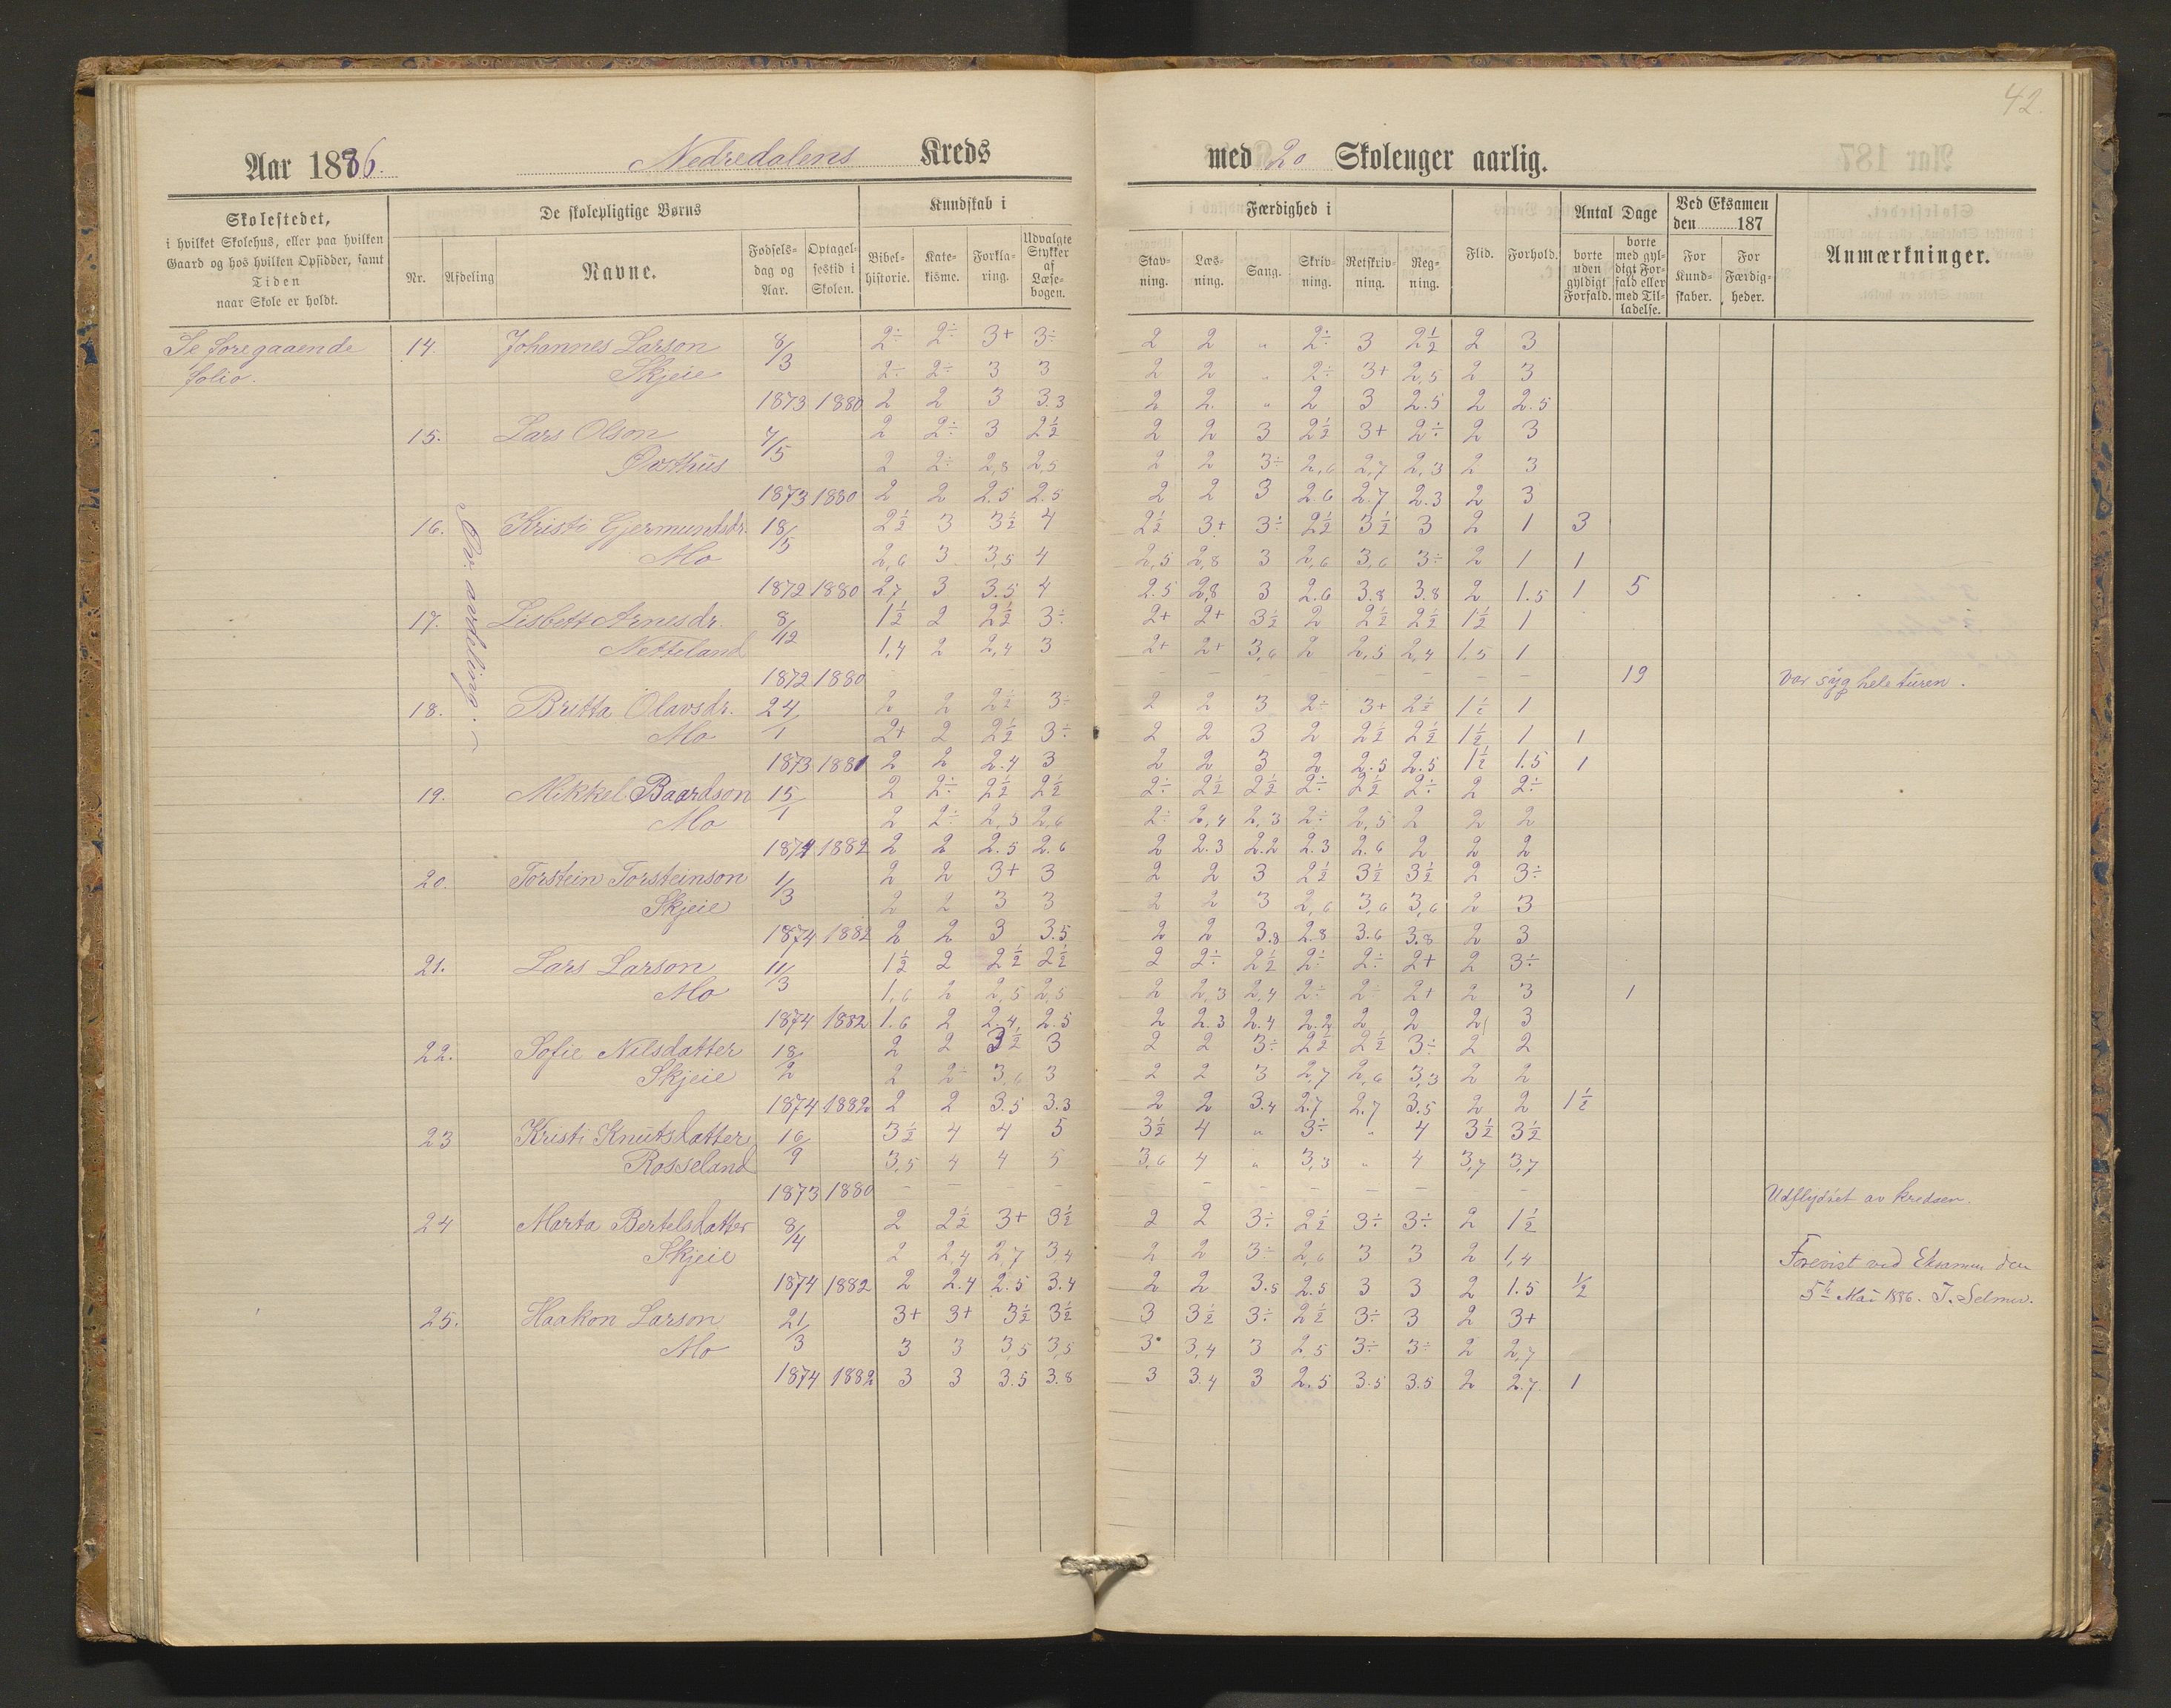 42.
Aar 1886. Nedredalens Kreds med 20 Skolenger aarlig.
Skolestedet, i hvilket Skolehus, eller paa hvilken Gaard og hos hvilken Opsidder, samt Tiden naar Skole er holdt.
De skolepligtige Børns
Nr. Afdeling Navne. Fødselsdag og Aar. Optagelsestid i Skolen.
Kundskab i
Bibelhistorie. Katekisme. Forklaring. Udvalgte Stykker af Læsebogen.
Færdighed i
Stavning. Læsning. Sang. Skrivning. Retskrivning. Regning.
Flid. Forhold.
Antal Dage
borte uden gyldigt Forfald. borte med gyldigt Forfald eller med Tilladelse.
Ved Eksamen den 187
For Kundskaber. For Færdigheder.
Anmærkninger.
Se foregaaende
folio.
Øv. avdeling.
14. Johannes Larson 8/3 2÷ 2÷ 3+ 3÷ 2 2 " 2÷ 3 2½ 2 3
Skjeie 2÷ 2÷ 3 3 2 2 " 2÷ 3+ 2,5 2 3
1873 1880 2 2 3 3.3 2 2. " 2 3 2.5 2 2.5
15. Lars Olson 7/5 2 2÷ 3 2½ 2 2 3 2½ 3+ 2÷ 2 3
Øvsthus 2 2÷ 2,8 2,5 2 2 3÷ 2,6 2,7 2,3 2 3
1873 1880 2 2 2.5 2.5 2 2 3 2.6 2.7 2.3 2 3
16. Kristi Gjermundsdr. 18/5 2½ 3 3½ 4 2½ 3+ 3÷ 2½ 3½ 3 2 1 3
Mo 2,6 3 3,5 4 2,5 2,8 3 2,6 3,6 3÷ 2 1 1
1872 1880 2,7 3 3.5 4 2.5 2,8 3 2.6 3.8 3.8 2 1.5 1 5
17. Lisbett Arnesdr. 8/12 1½ 2 2½ 3÷ 2+ 2+ 3½ 2 2½ 2½ 1½ 1
Netteland 1,4 2 2,4 3 2+ 2+ 3,6 2 2,5 2,4 1,5 1
1872 1880 – – – – – – – – 19 Var syg hele turen.
18. Britta Olavsdr. 24/1 2 2 2½ 3÷ 2 2 3 2÷ 3+ 2½ 1½ 1
Mo 2+ 2 2½ 3÷ 2 2 3 2 2½ 2½ 1½ 1 1
1873 1881 2 2 2.4 3 2 2 3 2 2.5 2.5 1½ 1.5 1
19. Mikkel Baardson 15/1 2 2÷ 2½ 2½ 2÷ 2½ 2½ 2÷ 2½ 2÷ 2 2÷
Mo 2 2÷ 2,5 2,6 2÷ 2,4 2,3 2÷ 2,5 2 2 2
1882 2 2 2.5 2.6 2 2.3 2.2 2.3 2.6 2 2 2
20. Torstein Torsteinson 1/3 2 2 3+ 3 2 2 3 2½ 3½ 3½ 2 3÷
Skjeie 2 2 3 3 2 2 3 2,6 3,6 3,6 2 3
1874 1882 2 2 3 3.5 2 2 3.8 2.8 3.6 3.8 2 3
21. Lars Larson 11/3 1½ 2 2½ 2½ 2 2÷ 2½ 2÷ 2÷ 2+ 2 3÷
Mo 1,6 2 2,5 2,5 2 2,3 2,4 2÷ 2÷ 2+ 2 3 1
1874 1882 1.6 2 2.4 2.5 2 2.3 2.4 2.2 2 2 2 3
22. Sofie Nilsdatter 18/2 2 2 3½ 3 2 2 3÷ 2½ 2½ 3÷ 2 2
Skjeie 2 2÷ 3,6 3 2 2 3 2,7 2,6 3,3 2 2
1874 1882 2 2 3.5 3.3 2 2 3.4 2.7 2.7 3.5 2 2 1½
23 Kristi Knutsdatter 16/9 3½ 4 4 5 3½ 4 " 3÷ " 4 3½ 3½
Rosseland 3,5 4 4 5 3,6 4 " 3,3 " 4 3,7 3,7
1873 1880 – – – – – – – – – – – – Udflydtet av kredsen.
24 Marta Bertelsdatter 8/4 2 2½ 3+ 3½ 2 2 3÷ 2½ 3÷ 3÷ 2 1½
Skjeie 2 2,4 2,7 3,4 2 2 3÷ 2,6 3 3 2 1,4 Forevist ved Eksamen den
1874 1882 2 2.4 2.5 3.4 2 2 3.5 2.5 3 3 2 1.5 ½ 5te Mai 1886. J. Selmer.
25. Haakon Larson 21/3 3+ 3+ 3½ 3½ 3 3½ 3÷ 2½ 3÷ 3 2 3+
Mo 3 3 3,5 3,5 3 3,4 3 2,5 3÷ 3÷ 2 2,7
1874 1882 3 3 3.5 3.8 3 3.4 3 2.5 3.5 3.5 2 2.7 1